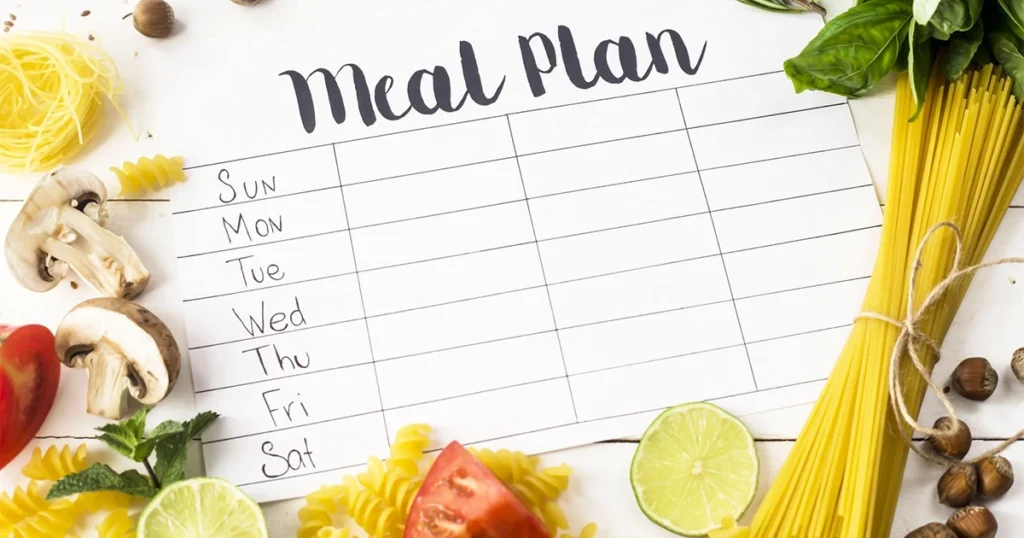 Meal Plan
Sun
Mon
Tue
Wed
Thu
Fri
Sat